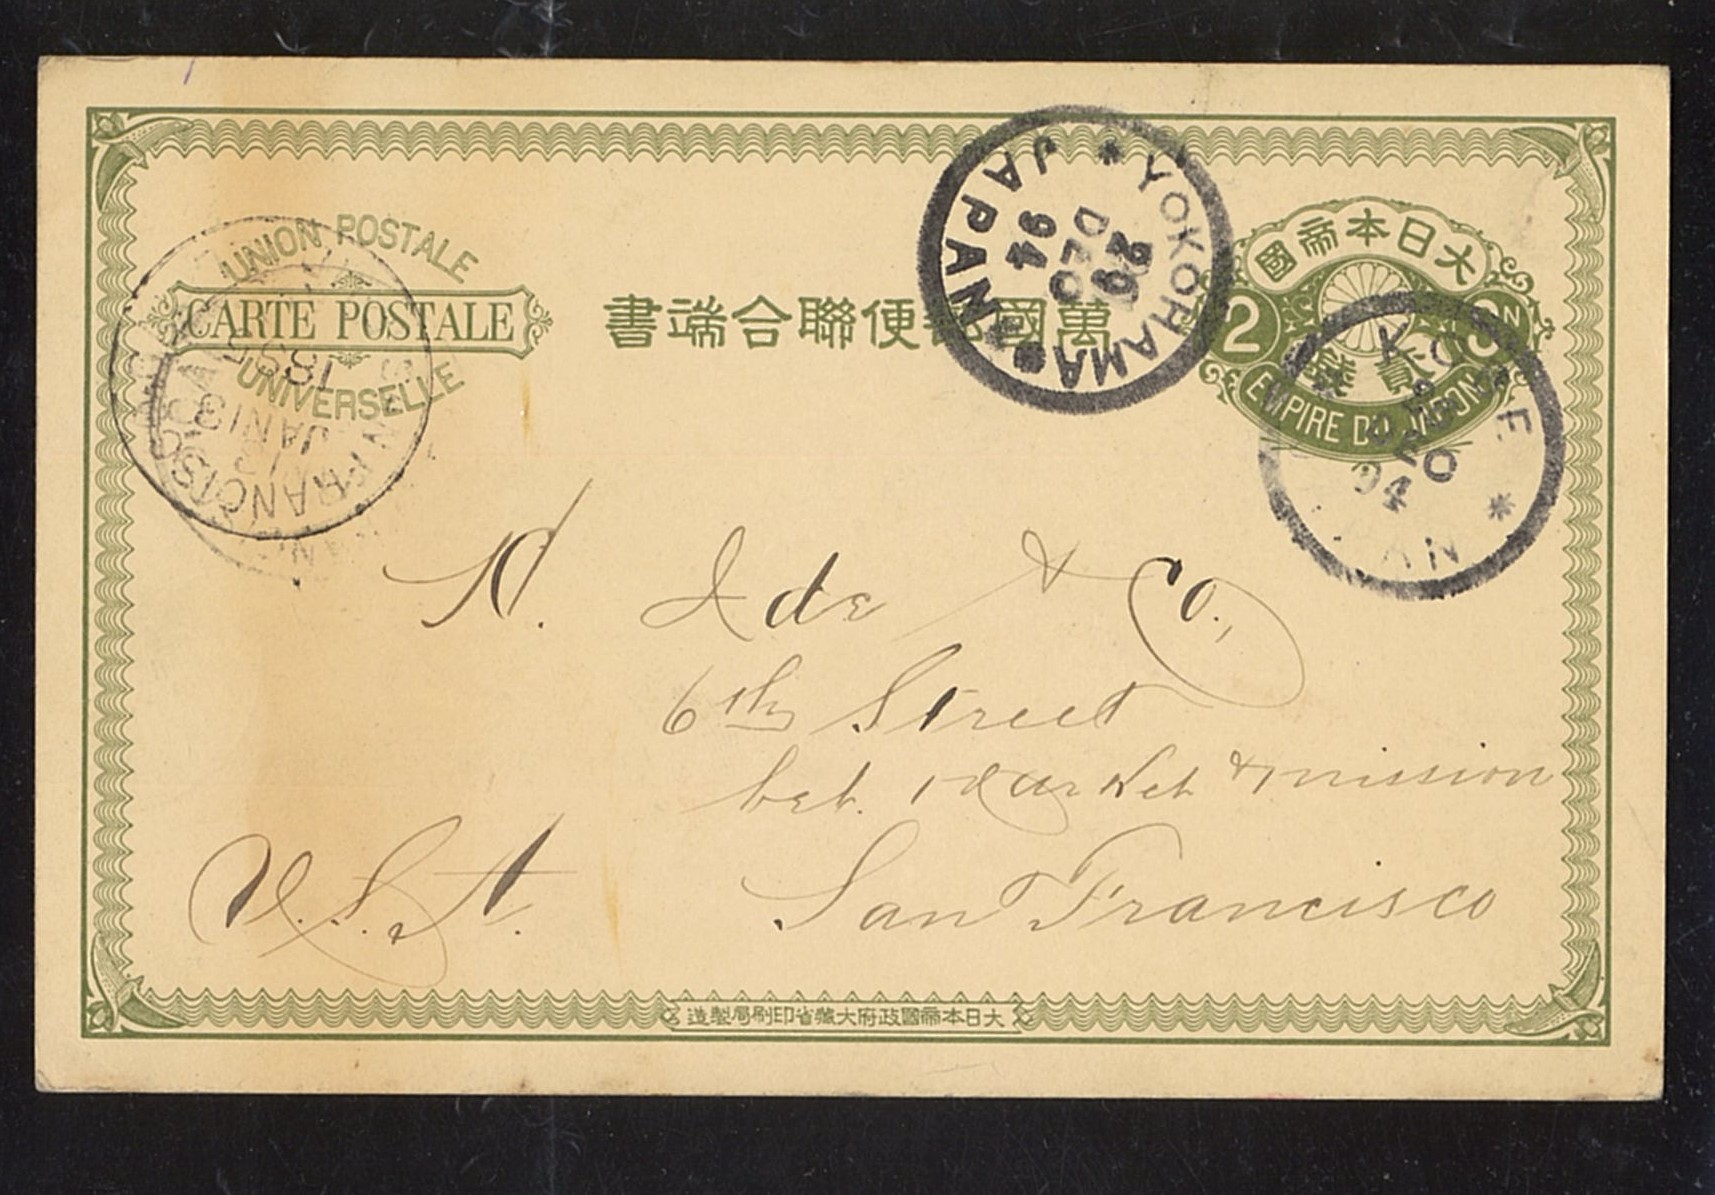 UNION POSTALE
CARTE POSTALE
UNIVERSELLE
書端合聯便郵國萬
YOKOHAMA
JAPAN
DEC
94
國帝本日大
2
SEN
錢貳
EMPIRE DU JAPON
KOBE
94
SAN FRANCISCO
JAN 13
1895
& Co.,
6th Street
bet. Market & mission
San Francisco
U.S.A.
造製局刷印省藏大府政國帝本日大